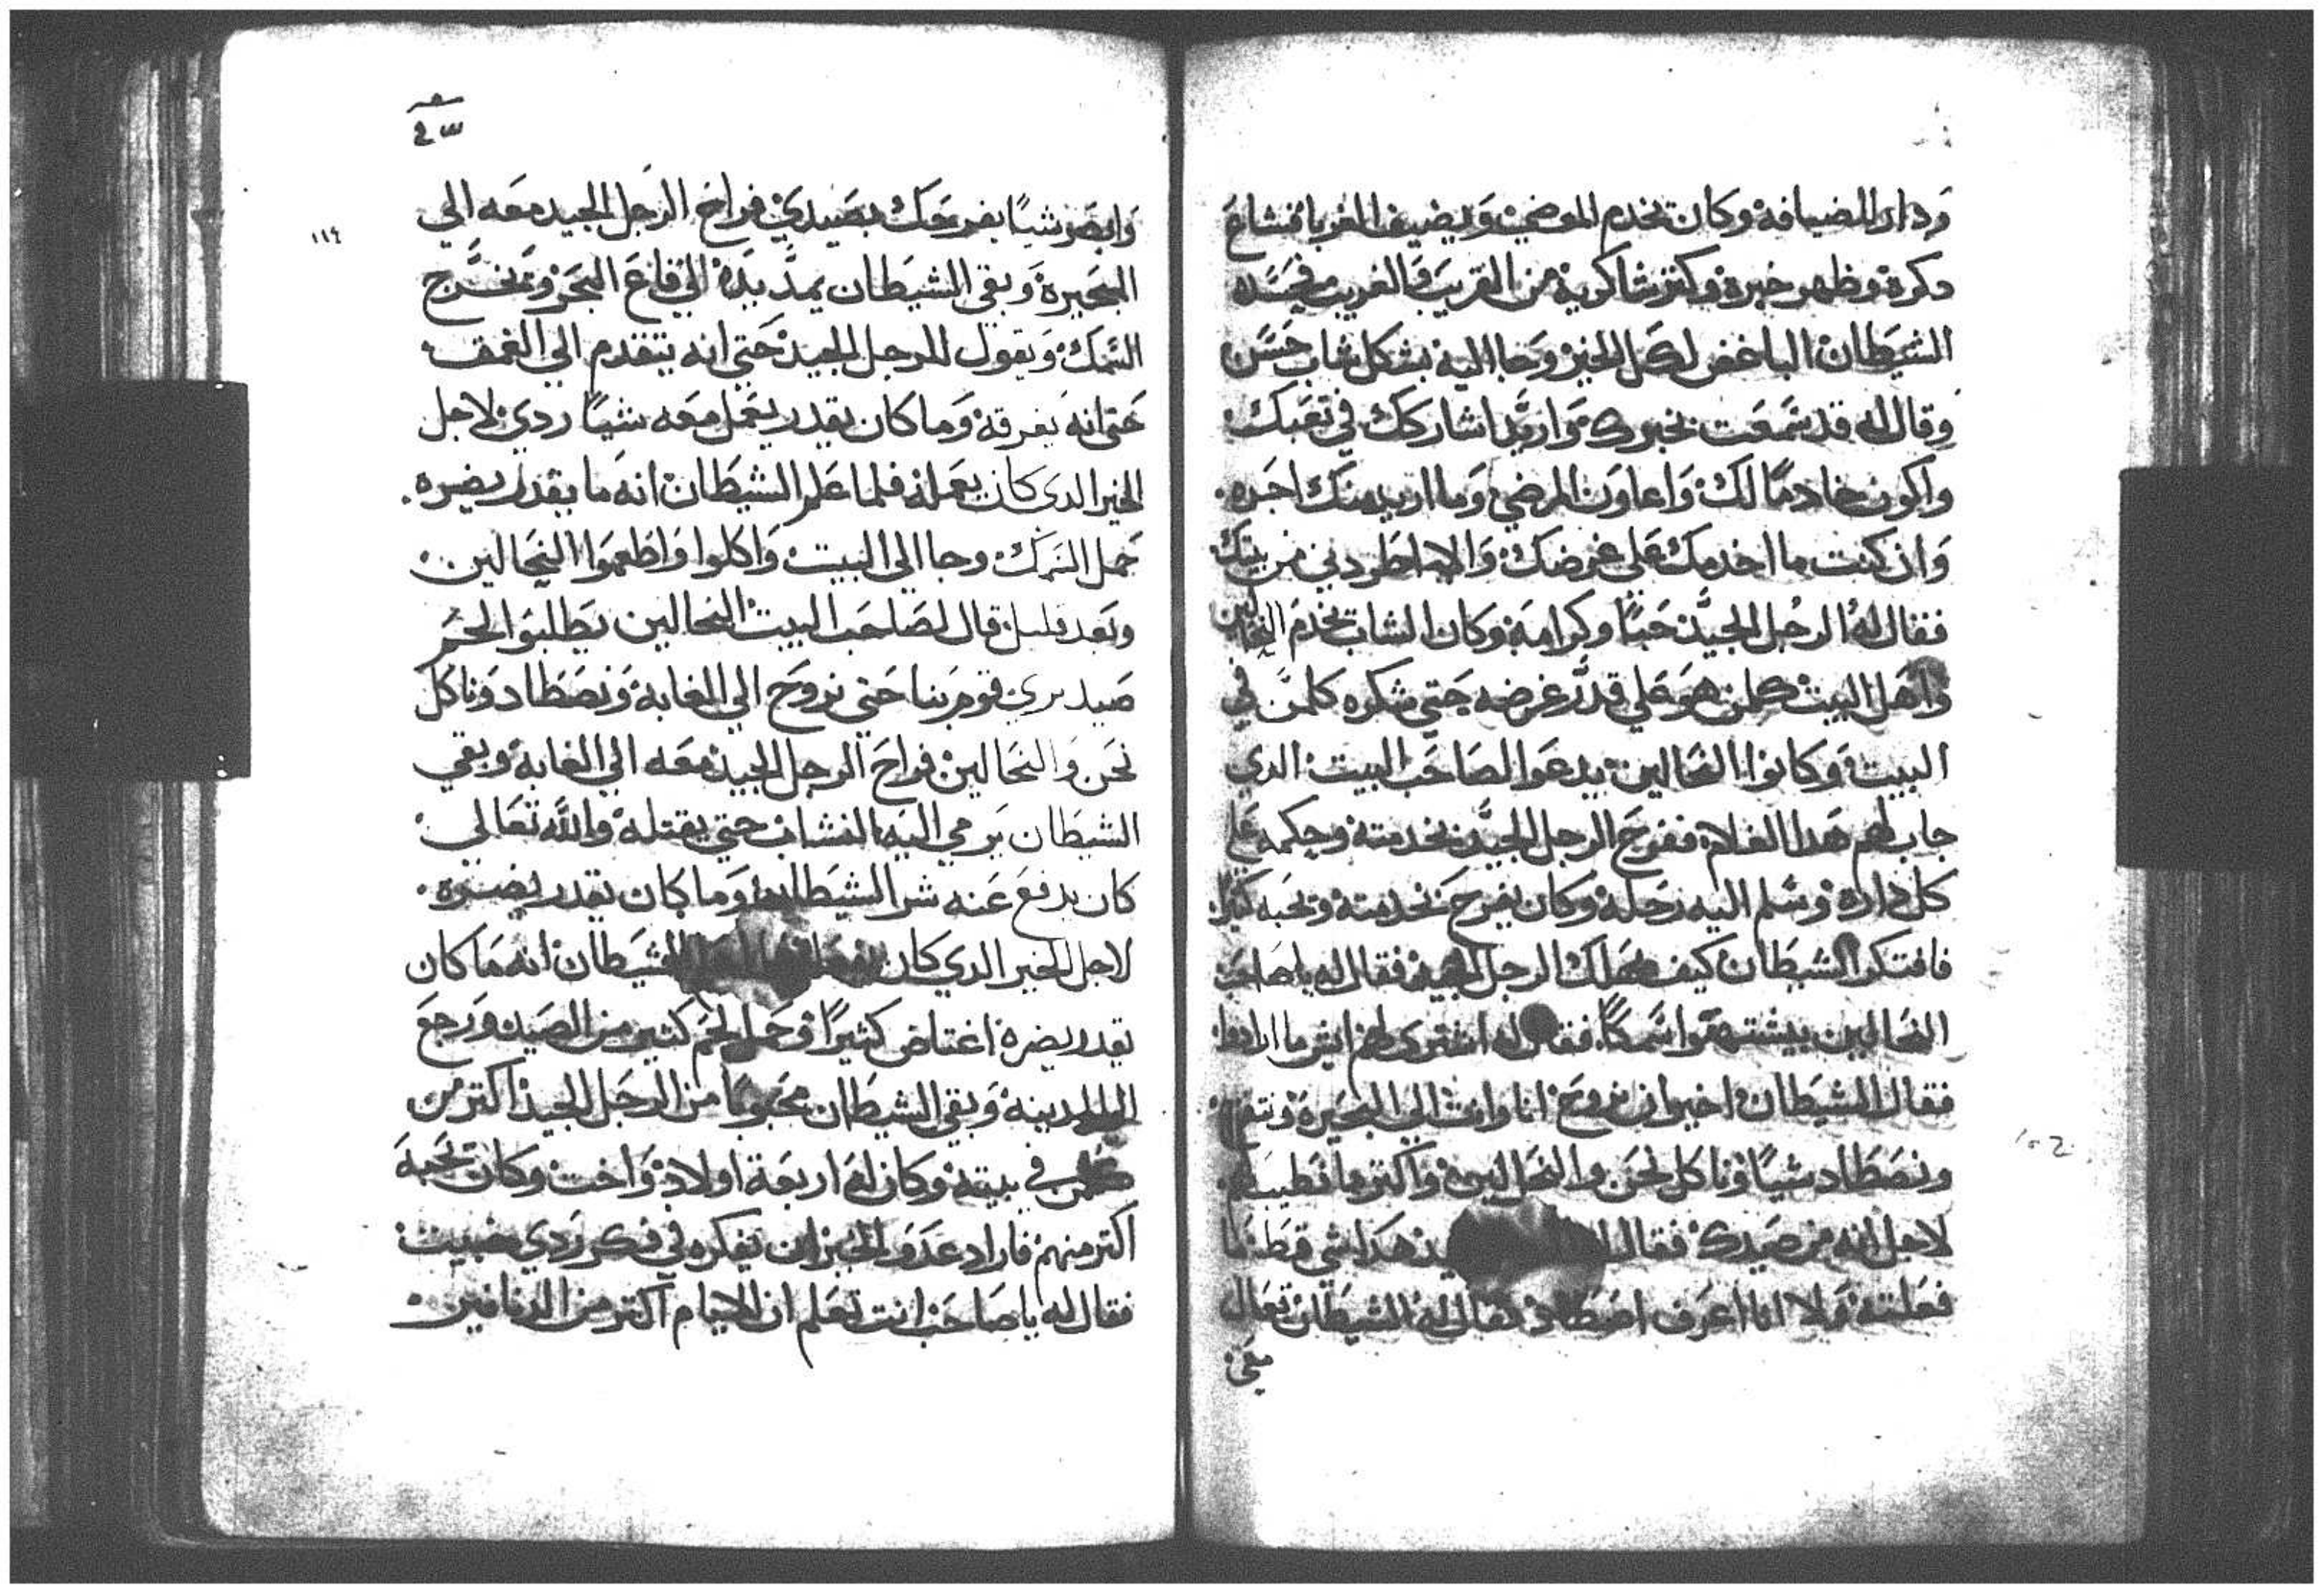 ودار للضيافة وكان تخدم المرضي ويضيف الغربا فشاع
دكره وظهر خبره وكتر شاكرية من القريب والغريب فحسده
الشيطان الباغض لكل الخير وجا اليه بشكل شاب حسن
وقال له قد سمعت بخبرك واريد اشاركك في تعبك
واكون خادماً لك واعاون المرضي وما اريد منك اجره
وان كنت ما اخدمك علي غرضك والا اطردني من بيتك
فقال له الرجل الجيد حباً وكرامة وكان الشاب يخدم النحالين
واهل البيت كلمن هو علي قدر غرضه حتي شكره كلمن في
البيت وكانوا النحالين يدعوا لصاحب البيت الدي
جاب لهم هدا الغلام ففرح الرجل الجيد بخدمته وحكمه علي
كل داره وسلم اليه رحله وكان يفرح بخدمته وتحبه كثيراً
فافتكر الشيطان كيف يهلك الرجل الجيد فقال له يا صاحب
النحالين بيشتهوا سمكاً فقال له اشتري لهم ايش ما ارادوا
فقال الشيطان اخير ان نروح انا وانت الي البحيرة ونتفرج
ونصطاد شياً وناكل نحن والنحالين واكتر ما تطيب لهم
لاجل انه من صيدك فقال هدا شي قط ما
فعلته ولا انا اعرف اصطاد فقال له الشيطان تعال
معي
٤٣
١١٩
وابصر شياً يفرحك بصيدي فراح الرجل الجيد معه الي
البحيرة وبقي الشيطان يمد يده الي قاع البحر وتخرج
السمك ويقول للرجل الجيد حتي انه يتقدم الي الغمق
حتي انه يغرقه وما كان يقدر يعمل معه شياً ردي لاجل
الخير الدي كان يعمله فلما علم الشيطان انه ما يقدر يضره
حمل السمك وجا الي البيت واكلوا واطعموا النحالين
وبعد قليل قال لصاحب البيت النحالين يطلبوا لحم
صيد بري قوم بنا حتي نروح الي الغابة ونصطاد وناكل
نحن والنحالين فراح الرجل الجيد معه الي الغابة وبقي
الشيطان يرمي اليه النشاب حتي يقتله والله تعالي
كان يدفع عنه شر الشيطان وما كان يقدر يضره
لاجل الخير الدي كان الشيطان انه ما كان
يقدر يضره اغتاض كثيراً وحمل لحم كثير من الصيد ورجع
المدينة وبقي الشيطان محبوباً من الرجل الجيد اكتر من
كلمن في بيته وكان له اربعة اولاد واخت وكان تحبه
اكتر منهم فاراد عدو الخير ان يفكره في فكر ردي خبيث
فقال له يا صاحب انت تعلم ان الايام اكتر من الدنانير